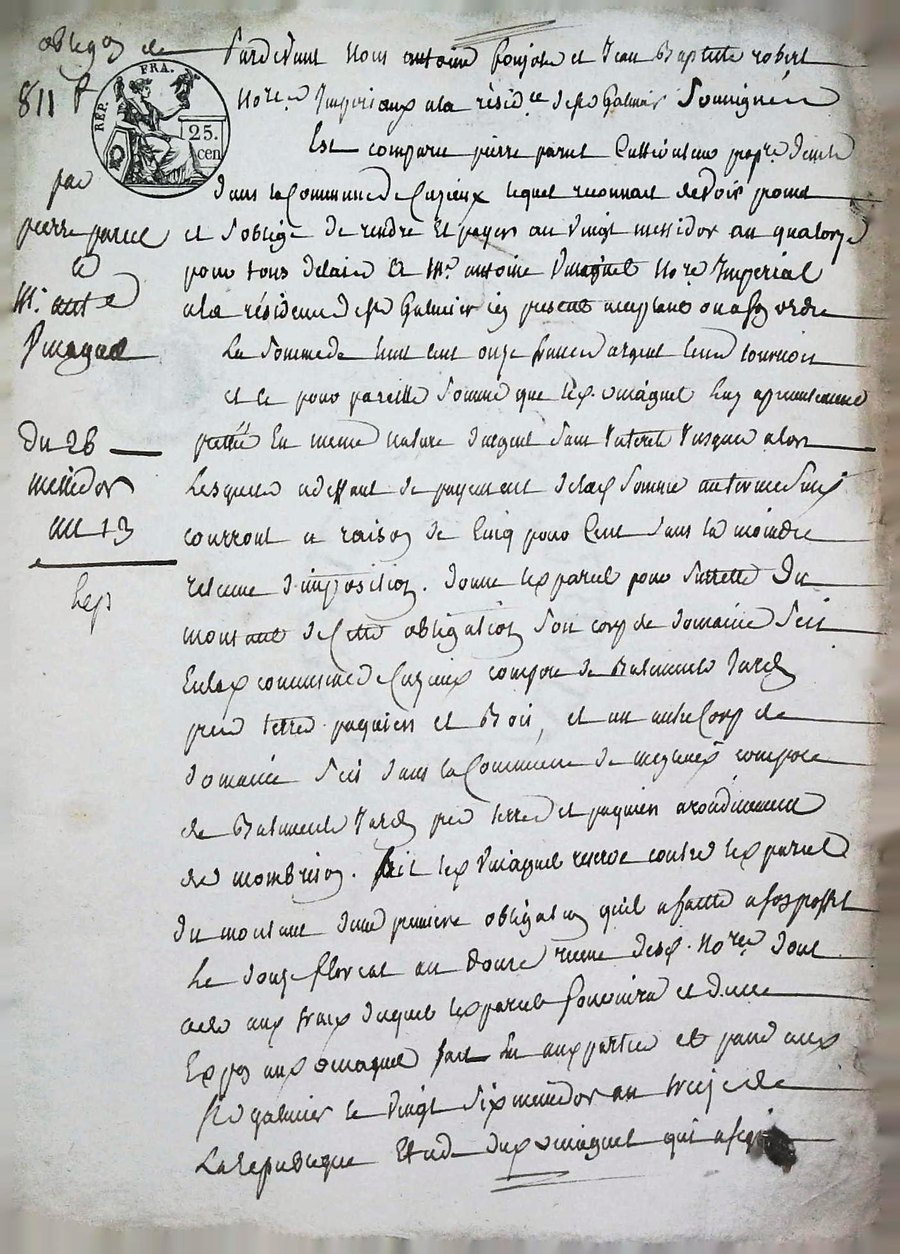 obligaon de
811 f
REP. FRA.
25.
cen
par
pierre parret
a
Mr. ant e
Vmaguet
Du 26
messidor
an 13
Pardevant Nous antoine et Jean Baptitte robert
Nores Imperiaux a la résidce de st Galmier Soussignés
Est comparu pierre parret Cultivateur propre demt
dans la Commune de Cuzieux lequel reconnait devoir promet
et s'oblige de rendre et payer au vingt messidor an quatorze
pour tous delais a Mr. antoine Vmaguet Nore Imperial
a la résidence de st Galmier icy present acceptant ou a son ordre
La Somme de huit cent onze francs argent
et ce pour pareille Somme que led. Vmaguet luy a
pretté En meme nature d'argent Sans Interet Jusques alors
Lesquels a deffaut de payement de lad Somme au terme
courront a raison de Cinq pour Cent sans la moindre
retenue d'imposition. donne led parret pour Surretté Du
montant de Cette obligation Son corp de domaine Scis
En lad commune de Cuzieux composé de Batiments Jardin
pred terre paquiers et Bois, et un autre Corp de
domaine Scis dans la Commune de composé
de Batiments Jardin pred terre et paquiers arondissement
de mombrison. fait led Vmaguet reserve contre led parret
du montant d'une premiere obligation qu'il a faitte a son proffit
Le douze floreal an douze recue Nores dont
acte aux fraix duquel led parret fournira
aud Vmaguet fait Lu aux parties et passé aud
St galmier le Vingt Six messidor an treize de
La Republique Etude dud Vmaguet qui a